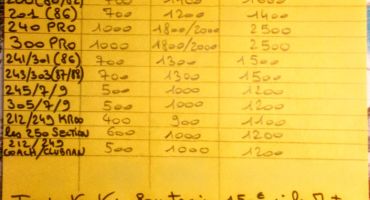 201 (86) 700 1200 1400
240 PRO 1000 1800/2000 2500
300 PRO 1000 1800/2000 2500
241/301 (86) 700 1300 1500
243/303 (87/88) 700 1300 1500
245/7/9 500 1000 1200
305/7/9 500 1000 1200
212/249 400 900 1100
250 SECTION 600 1000 1200
212/249
COACH/CLUBMAN 500 1000 1200